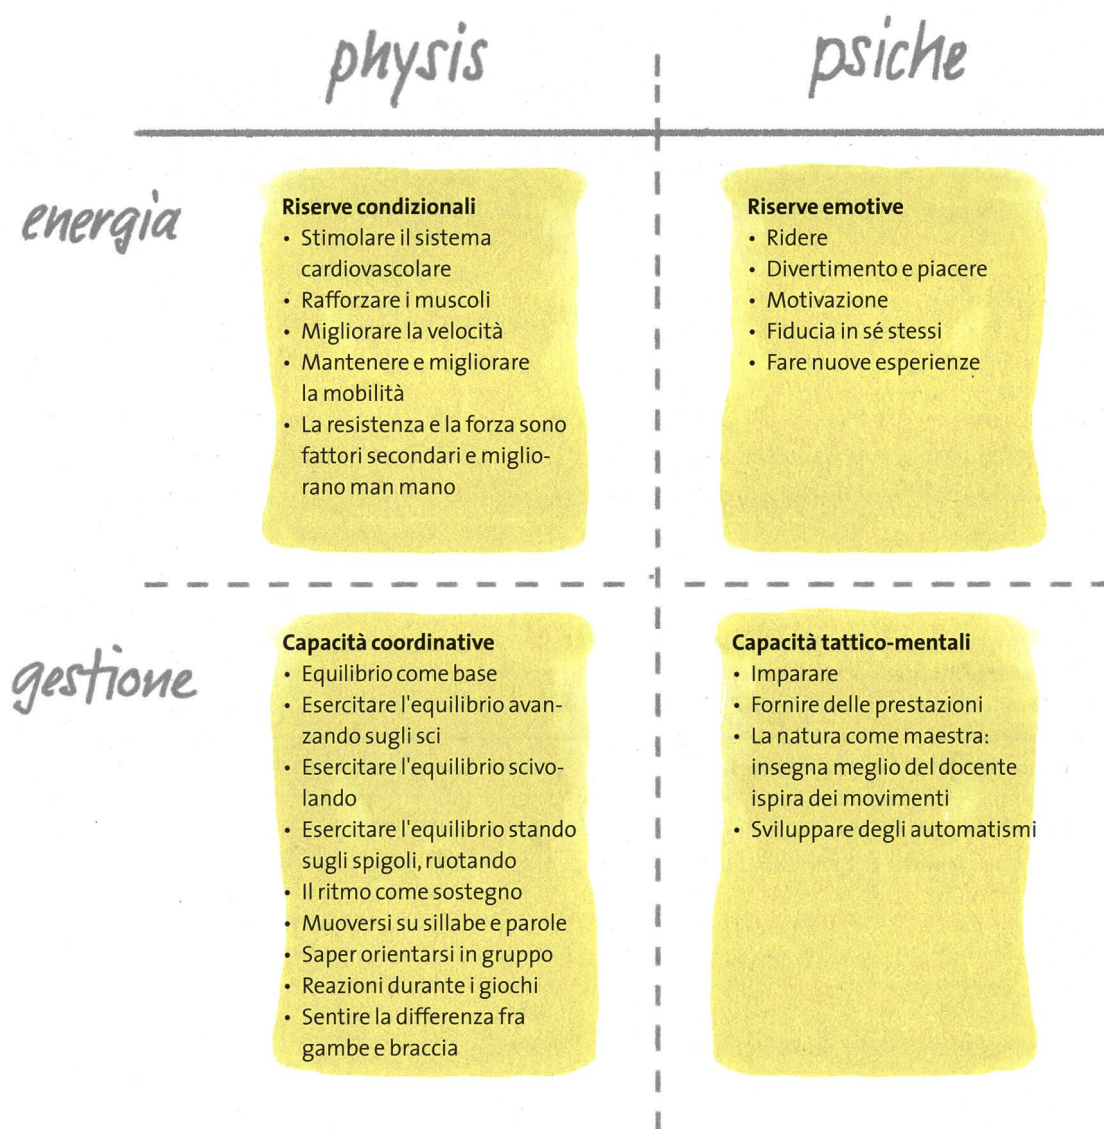 physis
psiche
energia
Riserve condizionali
• Stimolare il sistema
cardiovascolare
• Rafforzare i muscoli
• Migliorare la velocità
• Mantenere e migliorare
la mobilità
• La resistenza e la forza sono
fattori secondari e miglio-
rano man mano
Riserve emotive
• Ridere
• Divertimento e piacere
• Motivazione
• Fiducia in sé stessi
• Fare nuove esperienze
gestione
Capacità coordinative
• Equilibrio come base
• Esercitare l'equilibrio avan-
zando sugli sci
• Esercitare l'equilibrio scivo-
lando
• Esercitare l'equilibrio stando
sugli spigoli, ruotando
• Il ritmo come sostegno
• Muoversi su sillabe e parole
• Saper orientarsi in gruppo
• Reazioni durante i giochi
• Sentire la differenza fra
gambe e braccia
Capacità tattico-mentali
• Imparare
• Fornire delle prestazioni
• La natura come maestra:
insegna meglio del docente
ispira dei movimenti
• Sviluppare degli automatismi